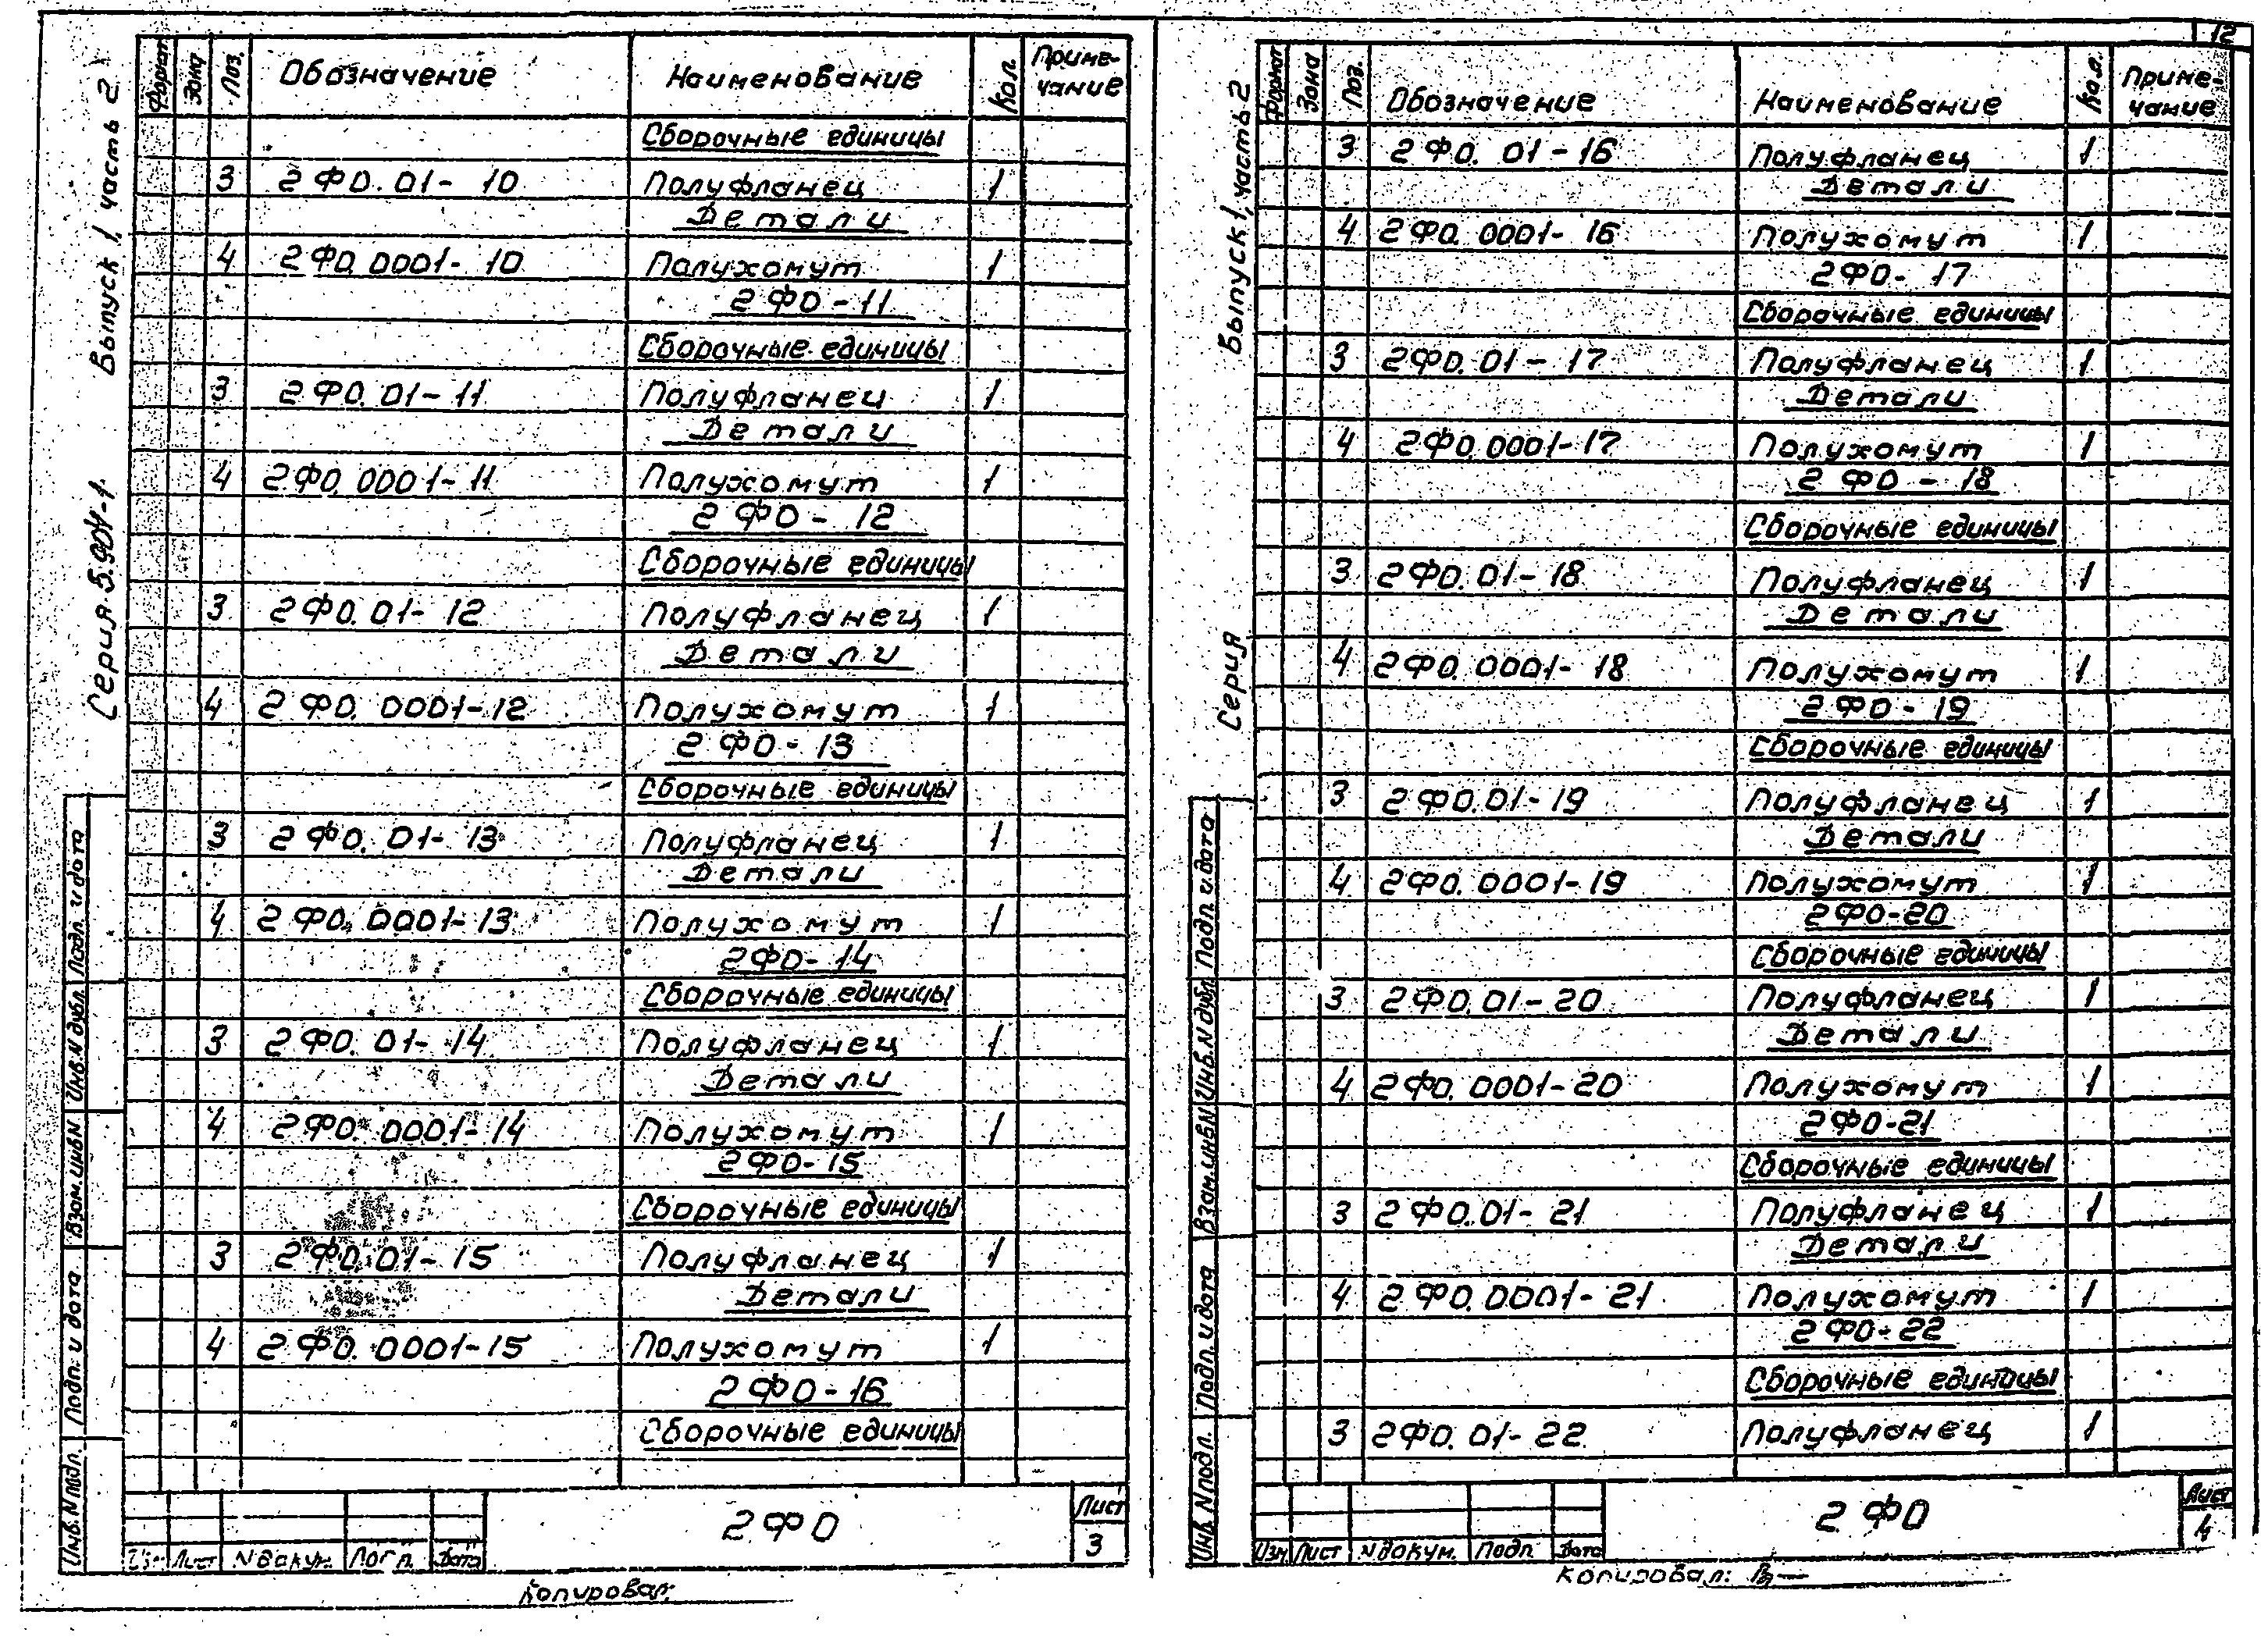 12
Серия 5.904-1. Выпуск 1, часть 2
Формат Зона Поз. Обозначение Наименование Кол. Приме-
чание
Сборочные единицы
3 2ФО.01-10 Полуфланец 1
Детали
4 2ФО.0001-10 Полухомут 1
2ФО-11
Сборочные единицы
3 2ФО.01-11 Полуфланец 1
Детали
4 2ФО.0001-11 Полухомут 1
2ФО-12
Сборочные единицы
3 2ФО.01-12 Полуфланец 1
Детали
4 2ФО.0001-12 Полухомут 1
2ФО-13
Сборочные единицы
3 2ФО.01-13 Полуфланец 1
Детали
4 2ФО.0001-13 Полухомут 1
2ФО-14
Сборочные единицы
3 2ФО.01-14 Полуфланец 1
Детали
4 2ФО.0001-14 Полухомут 1
2ФО-15
Сборочные единицы
3 2ФО.01-15 Полуфланец 1
Детали
4 2ФО.0001-15 Полухомут 1
2ФО-16
Сборочные единицы
Инв.N подл. Подп. и дата Взам.инвN Инв.N дубл. Подп. и дата
2ФО
Лист
3
Изм Лист N докум. Подп. Дата
Копировал:
Серия Выпуск 1, часть 2
Формат Зона Поз. Обозначение Наименование Кол. Приме-
чание
3 2ФО.01-16 Полуфланец 1
Детали
4 2ФО.0001-16 Полухомут 1
2ФО-17
Сборочные единицы
3 2ФО.01-17 Полуфланец 1
Детали
4 2ФО.0001-17 Полухомут 1
2ФО-18
Сборочные единицы
3 2ФО.01-18 Полуфланец 1
Детали
4 2ФО.0001-18 Полухомут 1
2ФО-19
Сборочные единицы
3 2ФО.01-19 Полуфланец 1
Детали
4 2ФО.0001-19 Полухомут 1
2ФО-20
Сборочные единицы
3 2ФО.01-20 Полуфланец 1
Детали
4 2ФО.0001-20 Полухомут 1
2ФО-21
Сборочные единицы
3 2ФО.01-21 Полуфланец 1
Детали
4 2ФО.0001-21 Полухомут 1
2ФО-22
Сборочные единицы
3 2ФО.01-22 Полуфланец 1
Инв.N подл. Подп. и дата Взам.инвN Инв.N дубл. Подп. и дата
2ФО
Лист
4
Изм Лист N докум. Подп. Дата
Копировал: